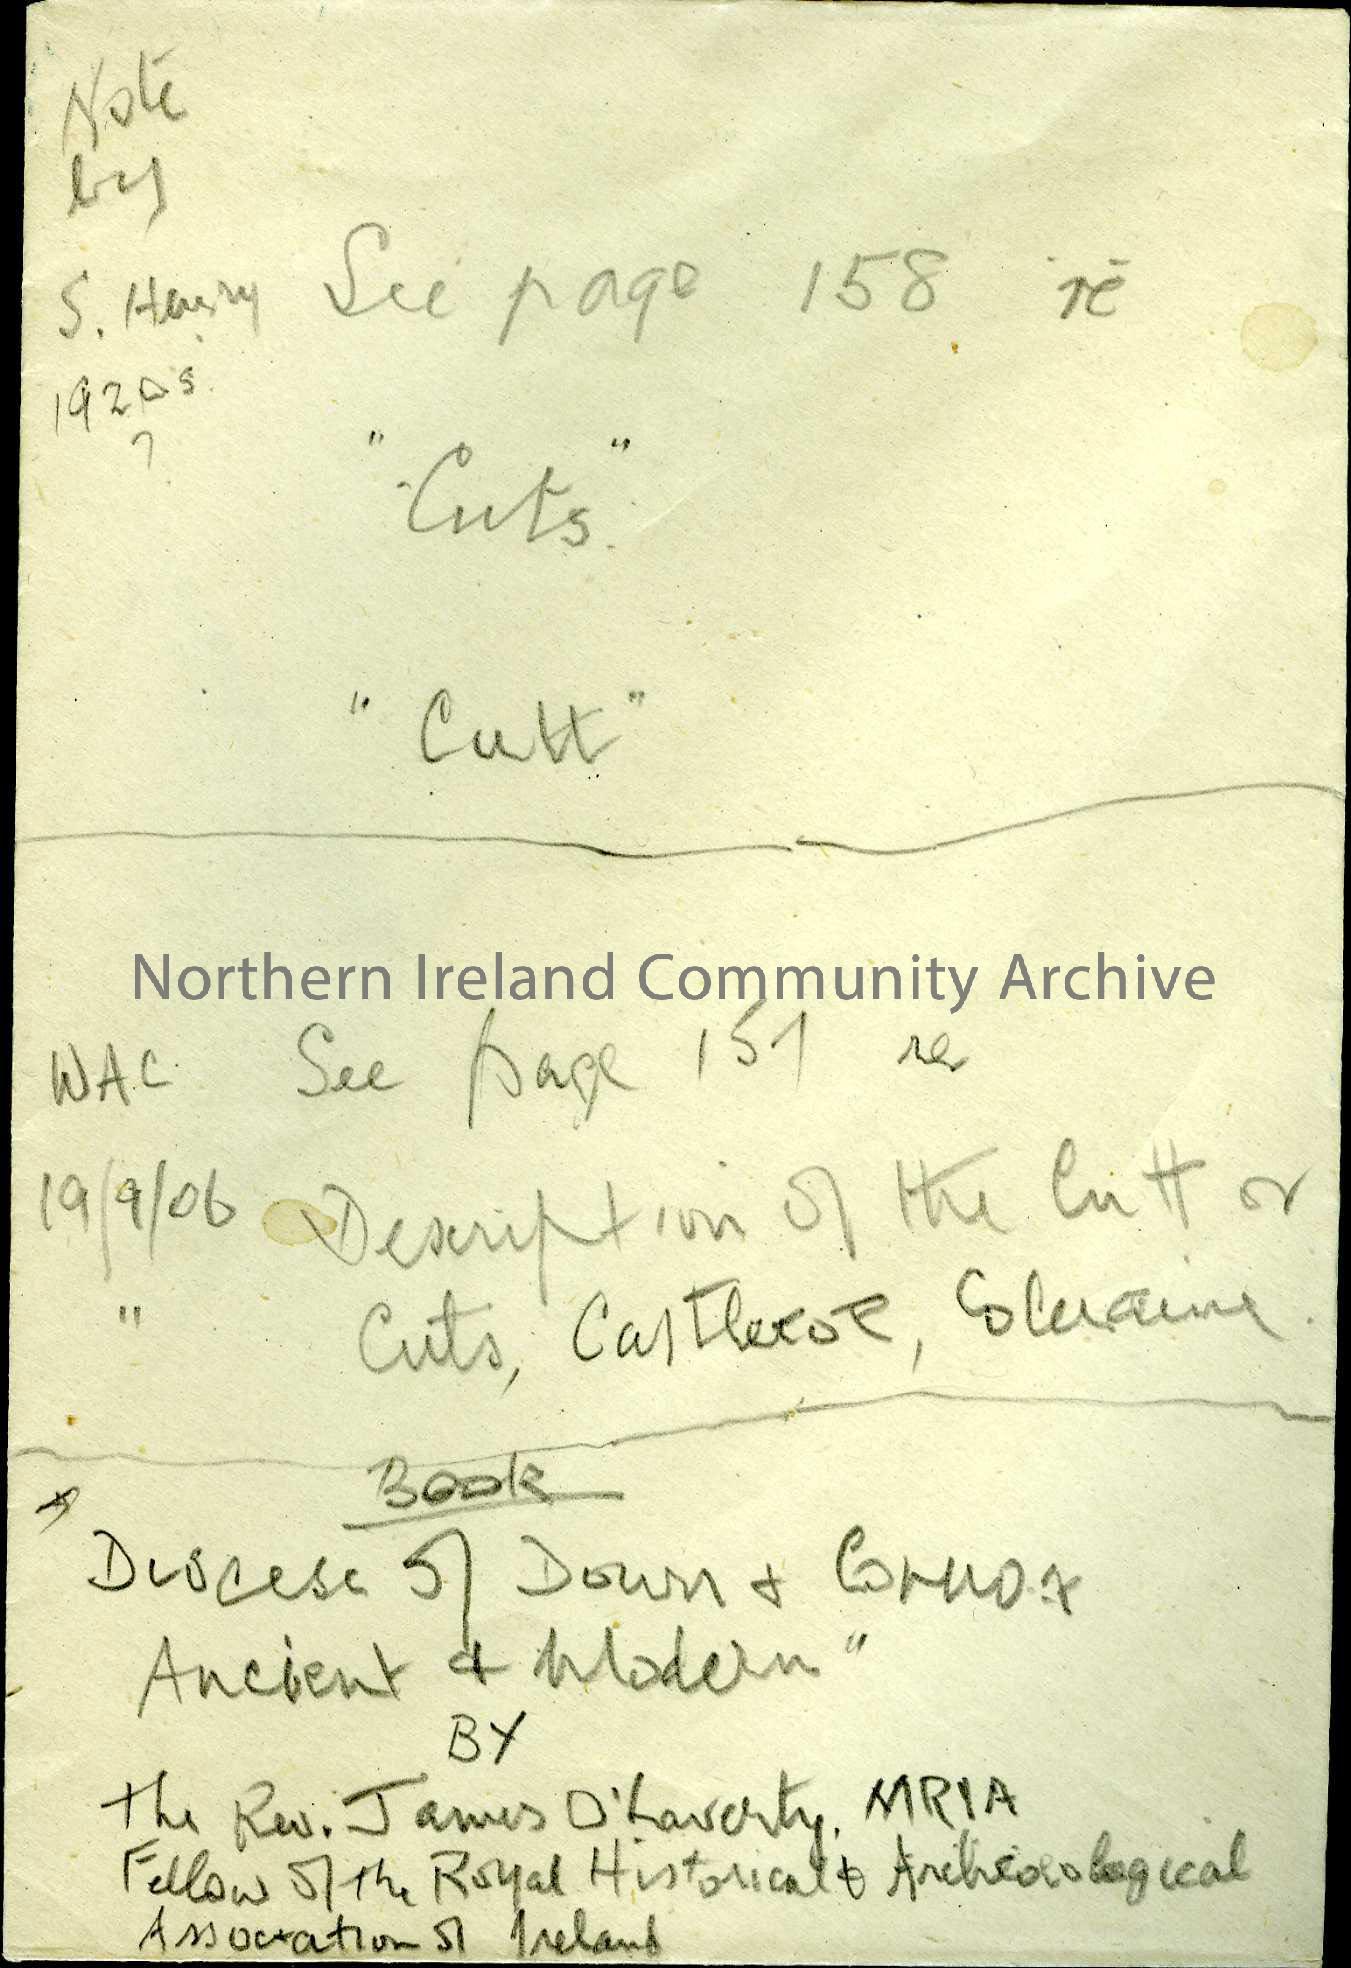 Note
by
S. Henry
1920s
?
See page 158 re
"Cuts"
"Cutt"
Northern Ireland Community Archive
WAC. See page 157 re
19/9/06 Description of the Cutt or
" Cuts, Castleroe, Coleraine.
Book
Diocese of Down & Connor
Ancient & Modern"
BY
The Rev. James O'Laverty, MRIA
Fellow of the Royal Historical & Archaeological
Association of Ireland